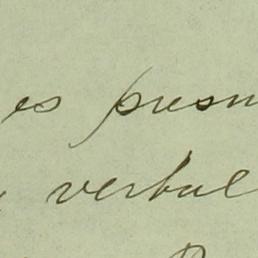 es presu
verbal